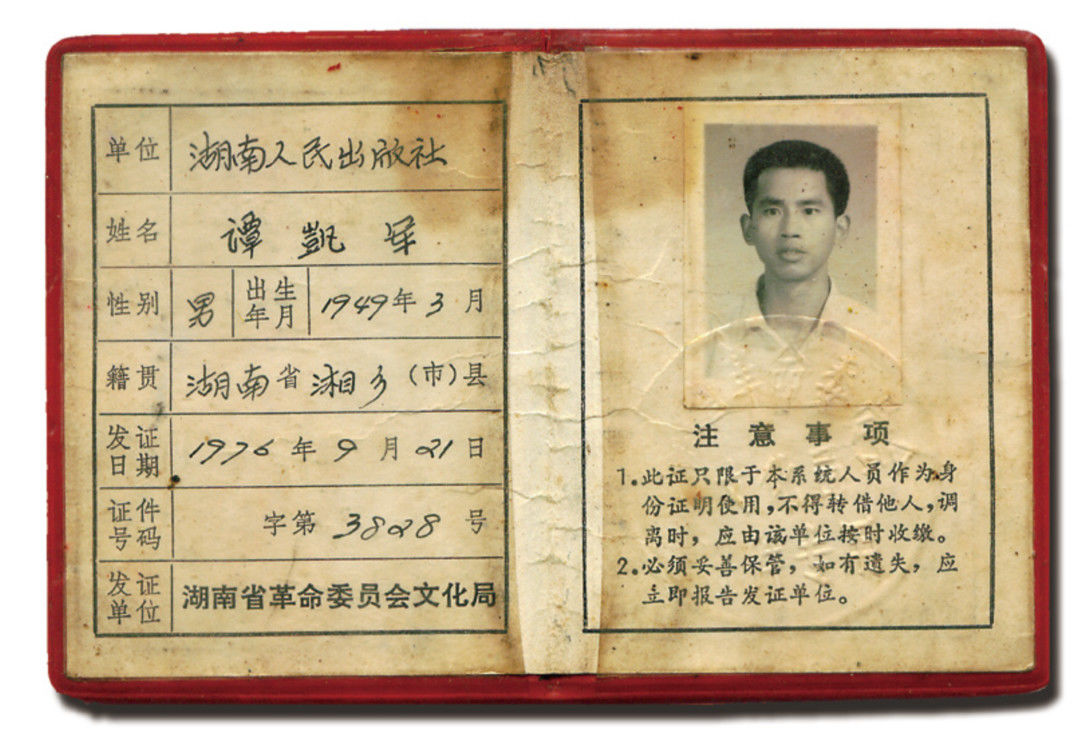 单位 湖南人民出版社
姓名 谭凯军
性别 男 出生年月 1949年3月
籍贯 湖南省湘乡(市)县
发证日期 1976年9月21日
证件号码 字第3828号
发证单位 湖南省革命委员会文化局
注意事项
1.此证只限于本系统人员作为身
份证明使用,不得转借他人,调
离时,应由该单位按时收缴。
2.必须妥善保管,如有遗失,应
立即报告发证单位。